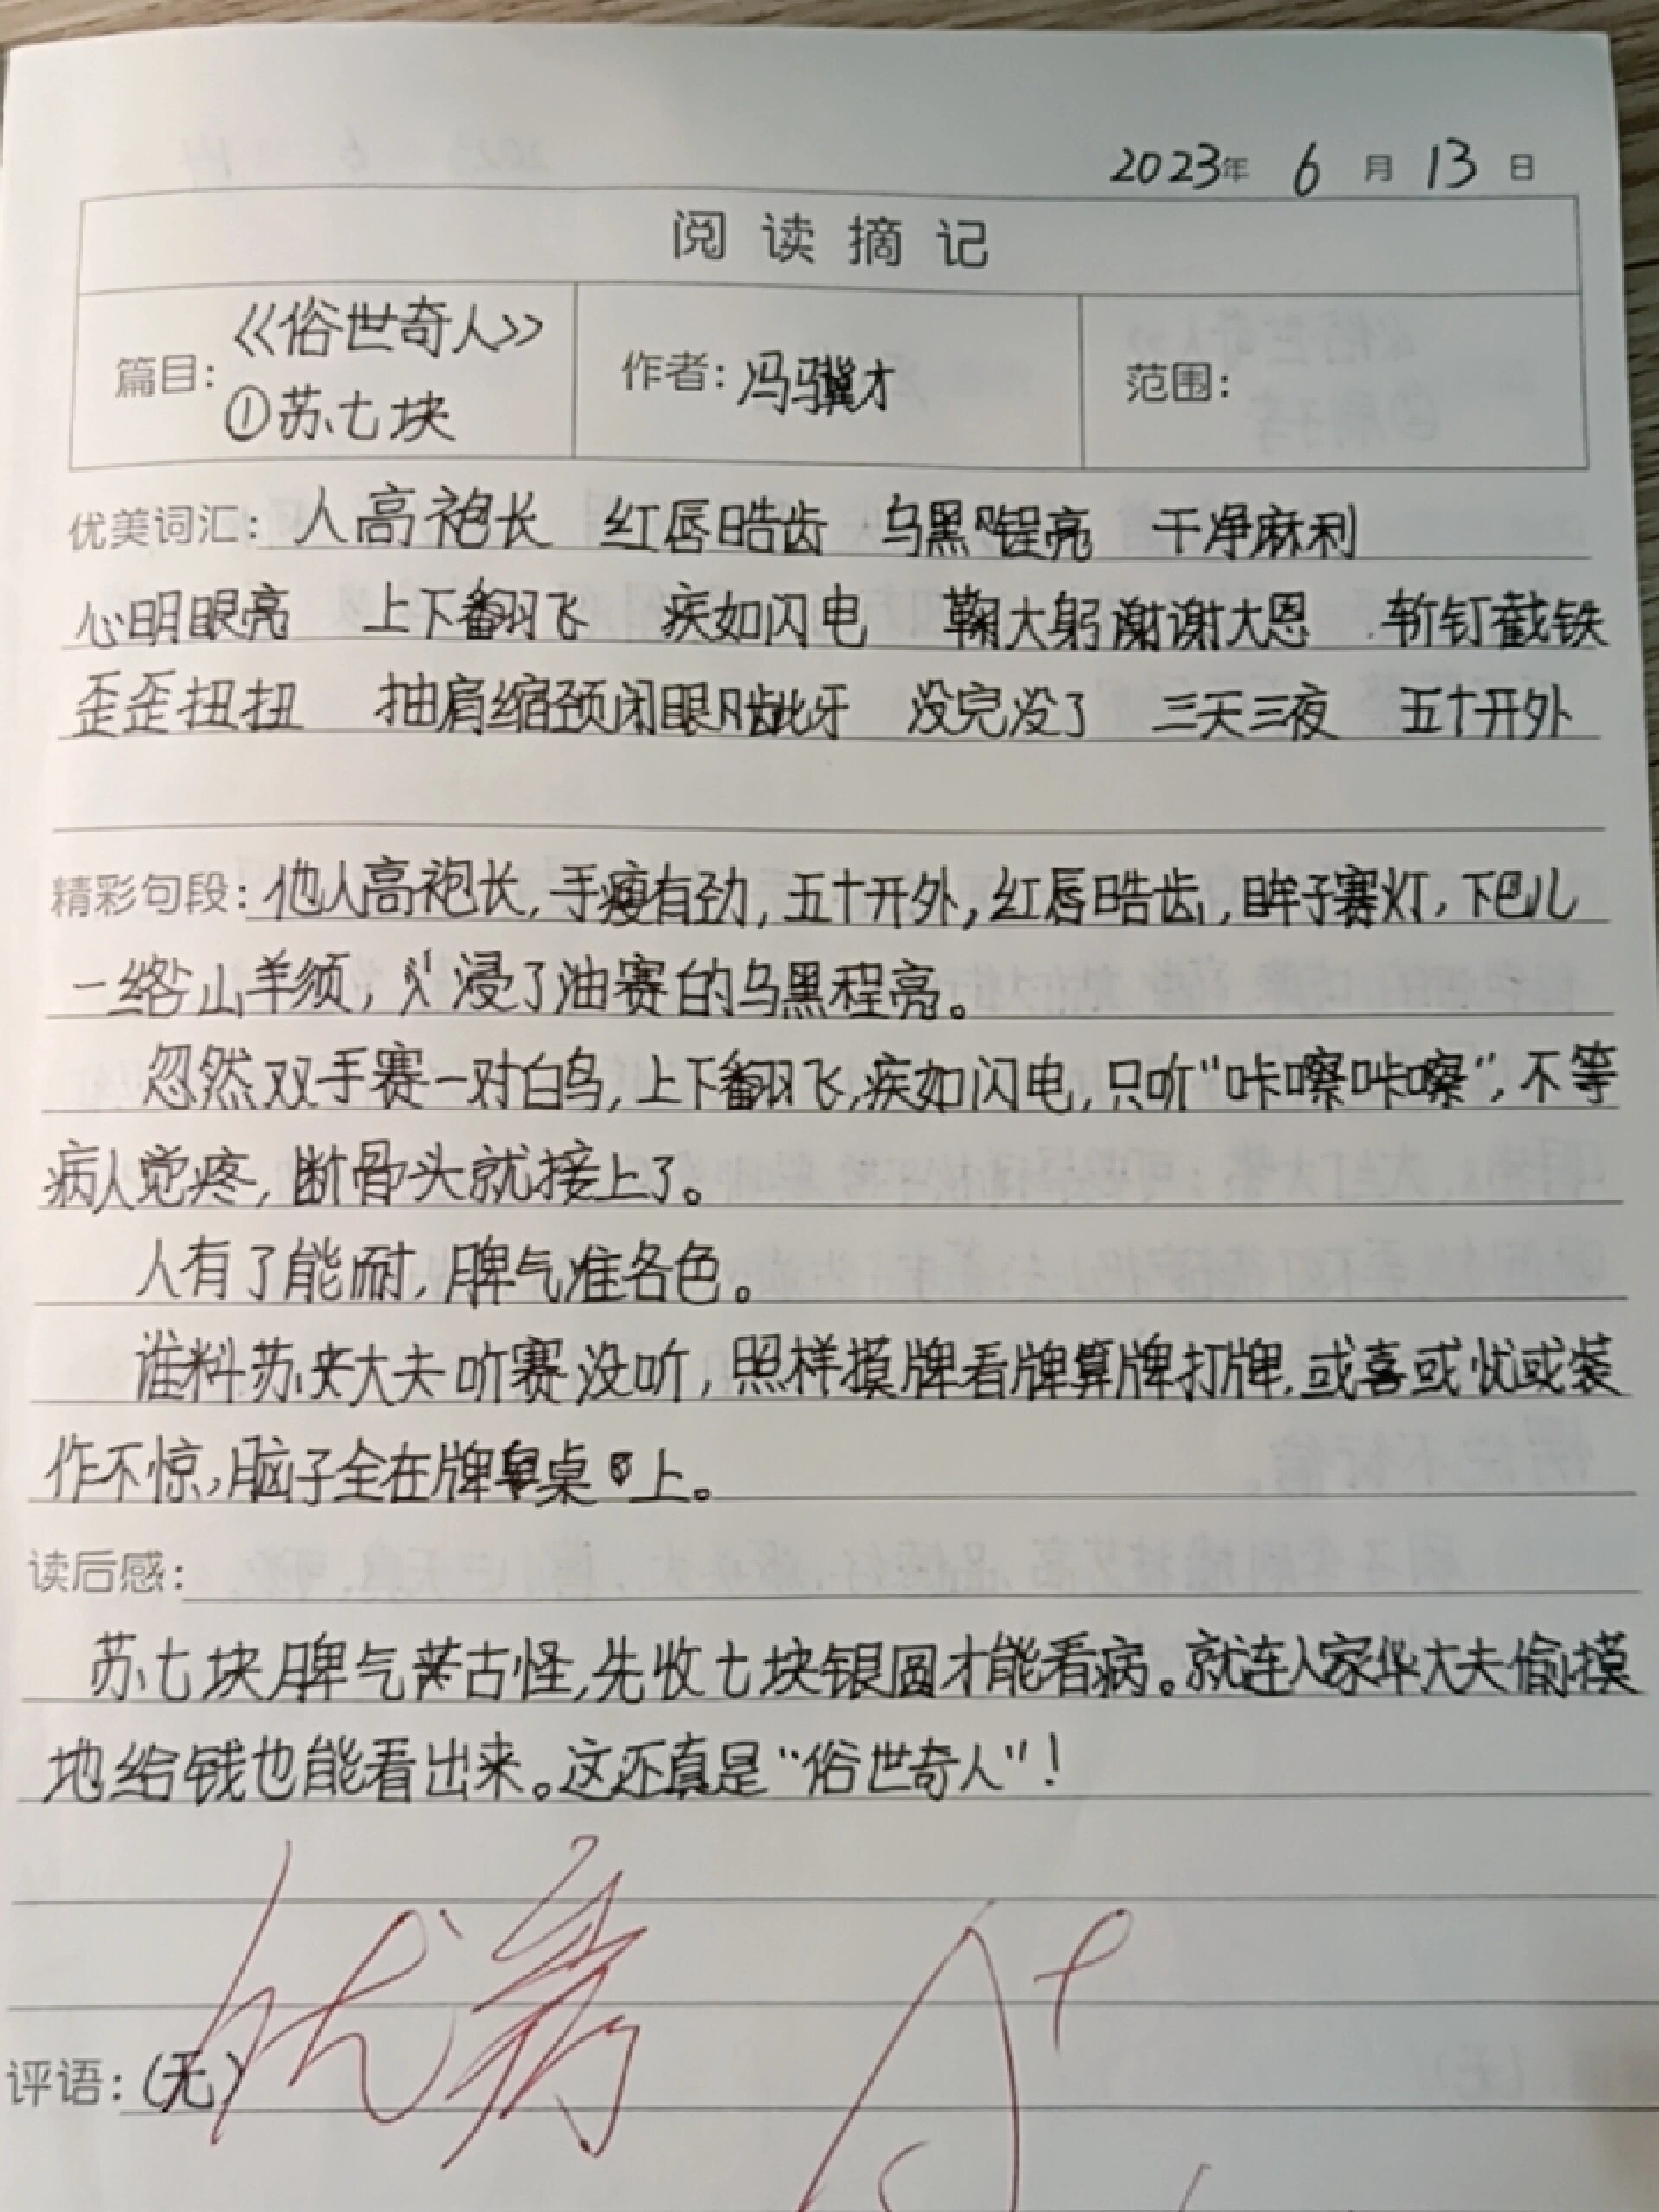 2023年 6 月 13 日
阅读摘记
篇目: 《俗世奇人》
①苏七块
作者: 冯骥才
范围:
优美词汇: 人高袍长 红唇皓齿 乌黑锃亮 干净麻利
心明眼亮 上下翻飞 疾如闪电 鞠大躬谢谢大恩 斩钉截铁
歪歪扭扭 抽肩缩颈闭眼龇牙 没完没了 三天三夜 五十开外
精彩句段: 他人高袍长,手瘦有劲,五十开外,红唇皓齿,眸子赛灯,下巴儿
一绺山羊须,浸了油赛的乌黑程亮。
忽然双手赛一对白鸟,上下翻飞,疾如闪电,只听"咔嚓咔嚓",不等
病人觉疼,断骨头就接上了。
人有了能耐,脾气准各色。
谁料苏大夫听赛没听,照样摸牌看牌算牌打牌,或喜或忧或装
作不惊,脑子全在牌桌上。
读后感:
苏七块脾气古怪,先收七块银圆才能看病。就连人家华大夫偷摸
地给钱也能看出来。这还真是"俗世奇人"!
优秀 A+
评语: (无)